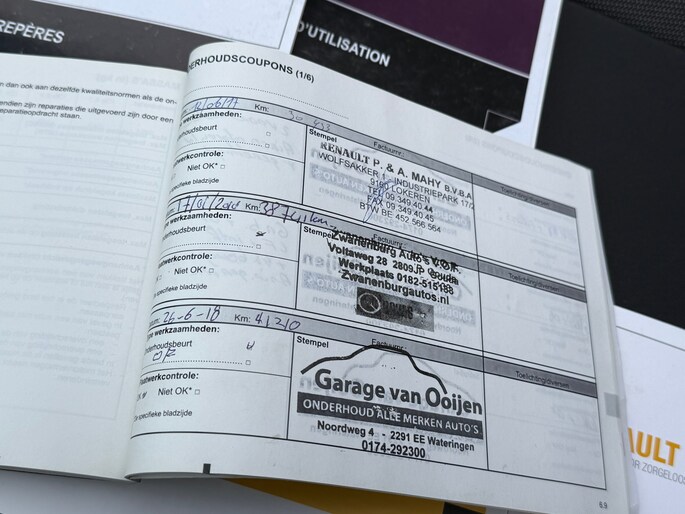 REPÈRES
D'UTILISATION
n dan ook aan dezelfde kwaliteitsnormen als de on-
endien zijn reparaties die uitgevoerd zijn door een
eparatieopdracht staan.
DERHOUDSCOUPONS (1/6)
Km: 30 433
werkzaamheden:
houdsbeurt
Stempel
Factuurnr.:
Toelichting/diversen
RENAULT P. & A. MAHY B.V.B.A
WOLFSAKKER 1 - INDUSTRIEPARK 17/2
9160 LOKEREN
TEL 09 349.40.44
FAX 09 349.40.45
BTW BE 452 566 564
twerkcontrole:
Niet OK*
specifieke bladzijde
Km: 38741 km
e werkzaamheden:
erhoudsbeurt
Stempel
Factuurnr.:
Toelichting/diversen
Zwanenburg Auto's V.O.F.
Voltaweg 28 2809 JP Gouda
Werkplaats 0182-515188
Zwanenburgautos.nl
atwerkcontrole:
Niet OK*
specifieke bladzijde
26-6-18 Km: 41210
ne werkzaamheden:
nderhoudsbeurt
Stempel
Factuurnr.:
Toelichting/diversen
Garage van Ooijen
ONDERHOUD ALLE MERKEN AUTO'S
Noordweg 4 - 2291 EE Wateringen
0174-292300
laatwerkcontrole:
OK
Niet OK*
e specifieke bladzijde
6.9
AULT
OR ZORGELOOS